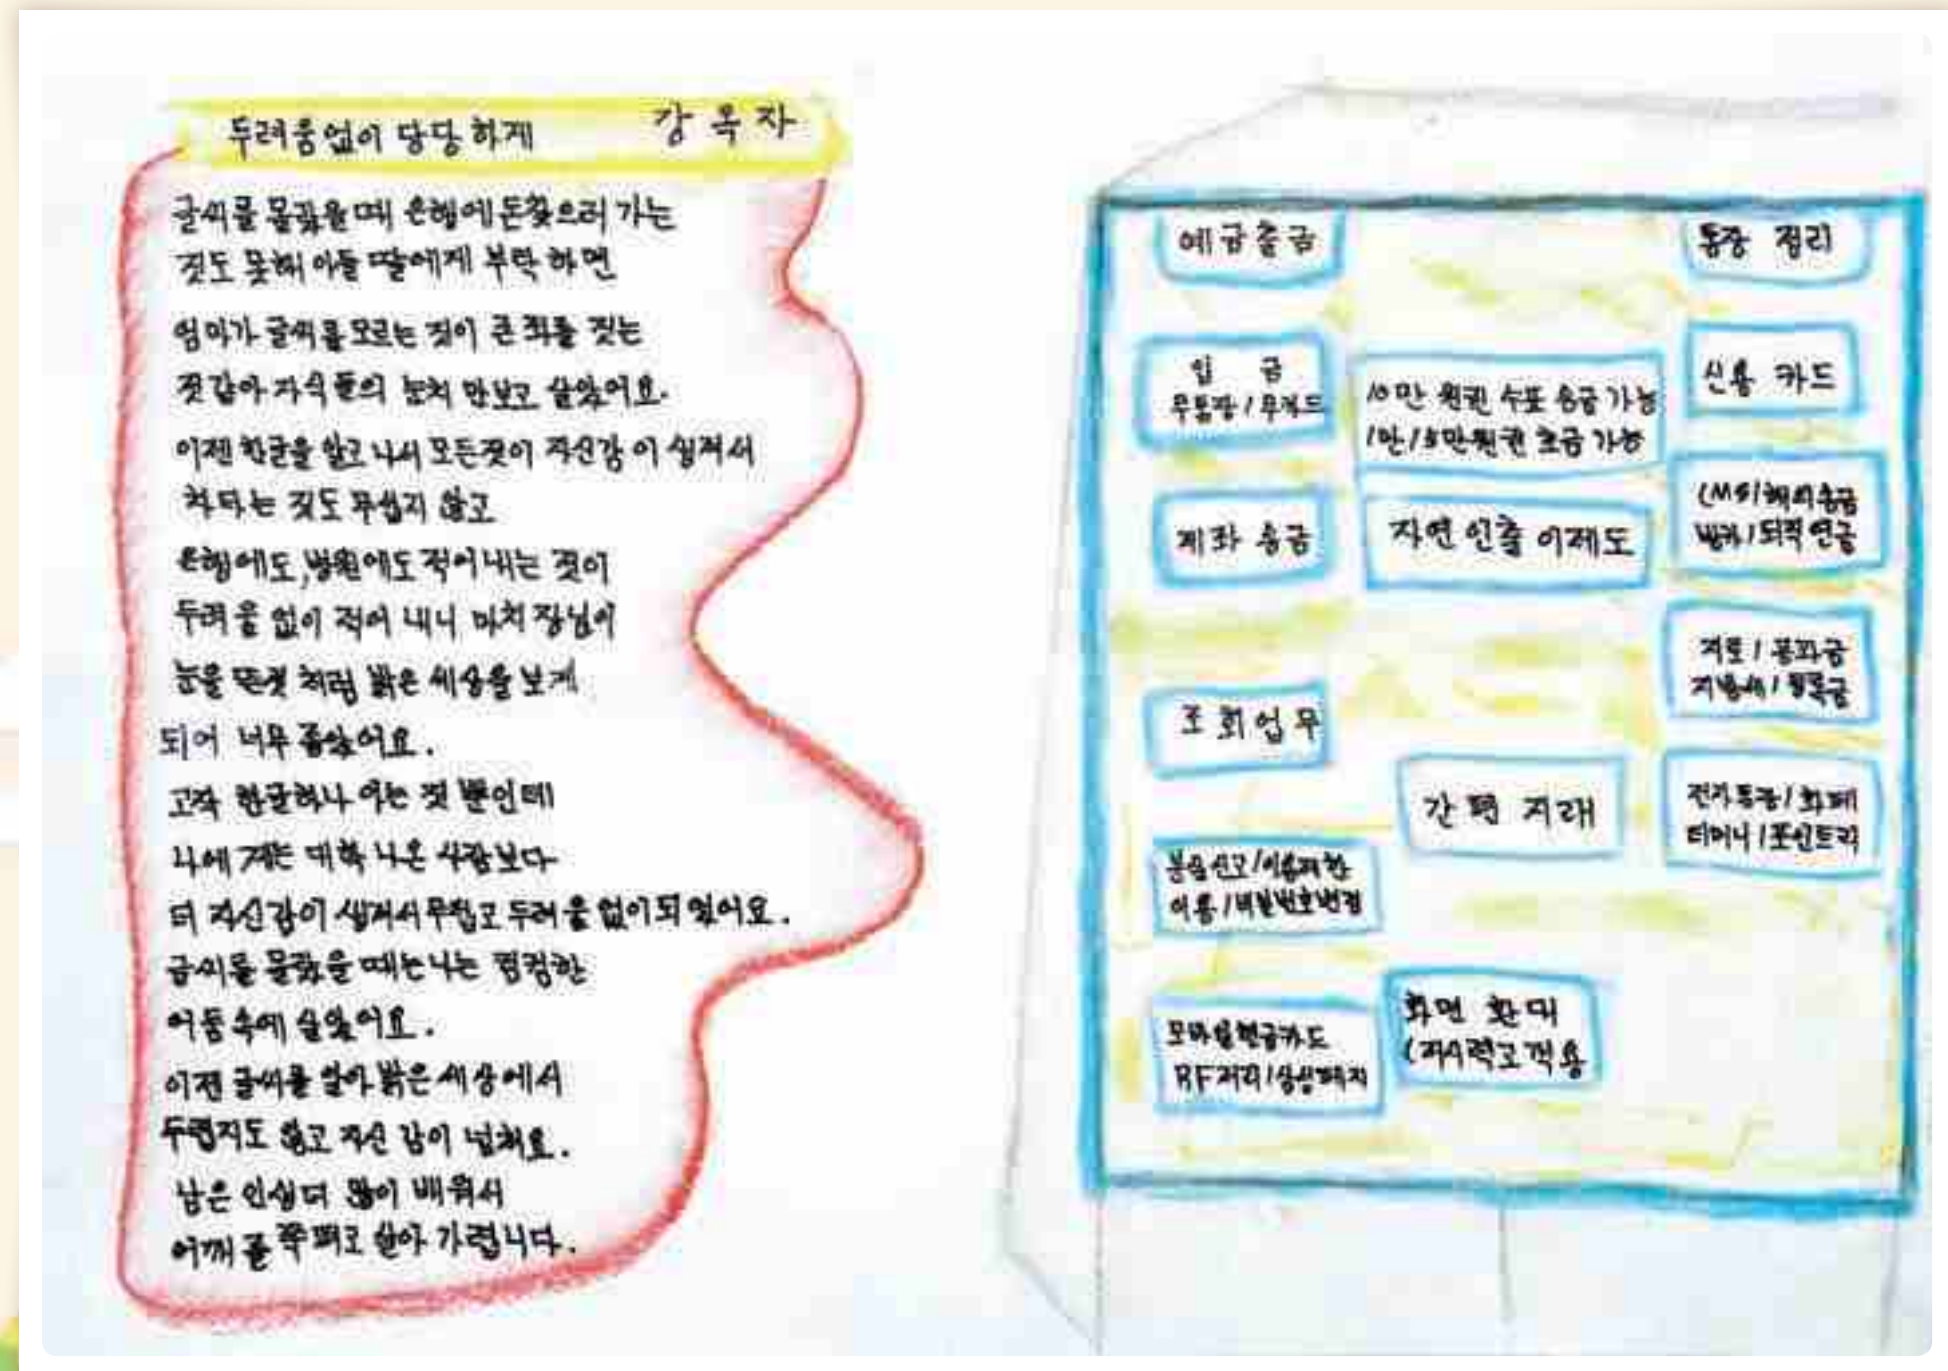 두려움없이 당당하게 강옥자
글씨를 몰랐을 때 은행에 돈찾으러 가는
것도 못해 아들 딸에게 부탁하면
엄마가 글씨를 모르는 것이 큰 죄를 짓는
것같아 자식들의 눈치만 보고 살았어요.
이젠 한글을 알고 나서 모든것이 자신감이 생겨서
차타는 것도 무섭지 않고
은행에도, 병원에도 적어내는 것이
두려움 없이 적어 내니 마치 장님이
눈을 뜬것 처럼 밝은 세상을 보게
되어 너무 좋았어요.
고작 한글하나 아는 것 뿐인데
나에게는 대학 나온 사람보다
더 자신감이 생겨서 무섭고 두려움 없이 되었어요.
글씨를 몰랐을 때는 나는 컴컴한
어둠속에 살았어요.
이젠 글씨를 알아 밝은 세상에서
두렵지도 않고 자신감이 넘쳐요.
남은 인생 더 많이 배워서
어깨를 쭉 펴고 살아 가렵니다.
예금출금
통장 정리
입 금
무통장/무카드
10만 원권 수표 송금 가능
1만/5만원권 초금 가능
신용 카드
계좌 송금
자연 인출 이제도
CMS/해외송금
/퇴직연금
조회업무
지로/공과금
지방세/등록금
간편 거래
전자통장/화폐
티머니/포인트리
분실신고/이용제한
이용/비밀번호변경
모바일현금카드
RF거리/
화면 확대
(저시력고객용